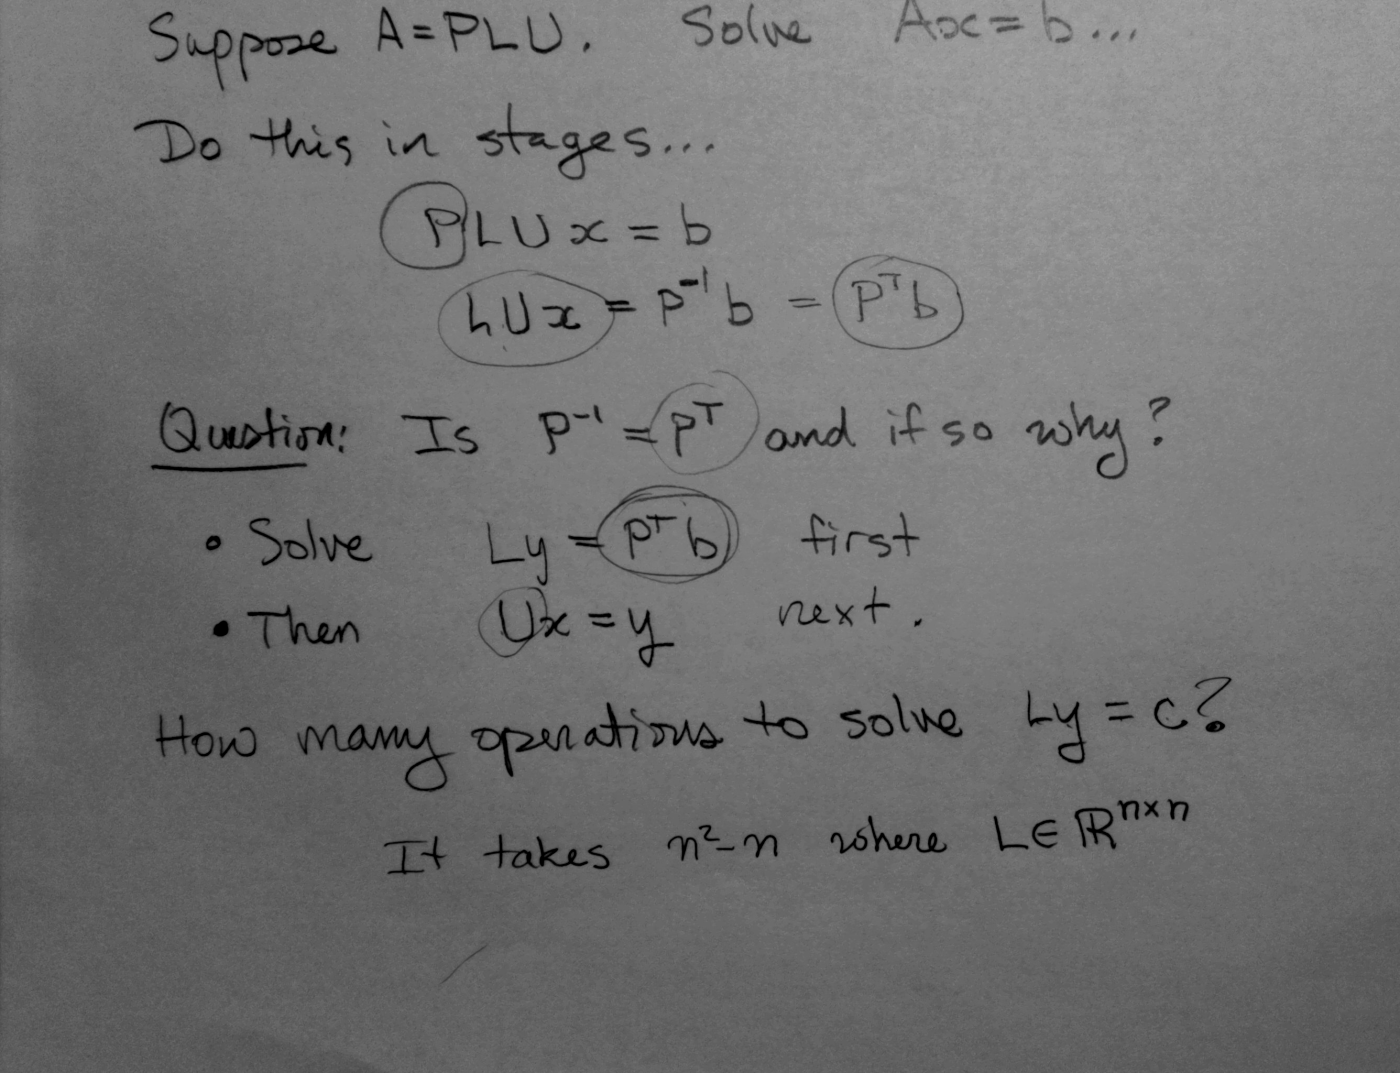 Suppose A=PLU. Solve Ax=b...
Do this in stages...
PLUx = b
LUx = P⁻¹b = Pᵀb
Question: Is P⁻¹ = Pᵀ and if so why?
• Solve Ly = Pᵀb first
• Then Ux = y next.
How many operations to solve Ly = c?
It takes n²-n where L∈ℝⁿˣⁿ